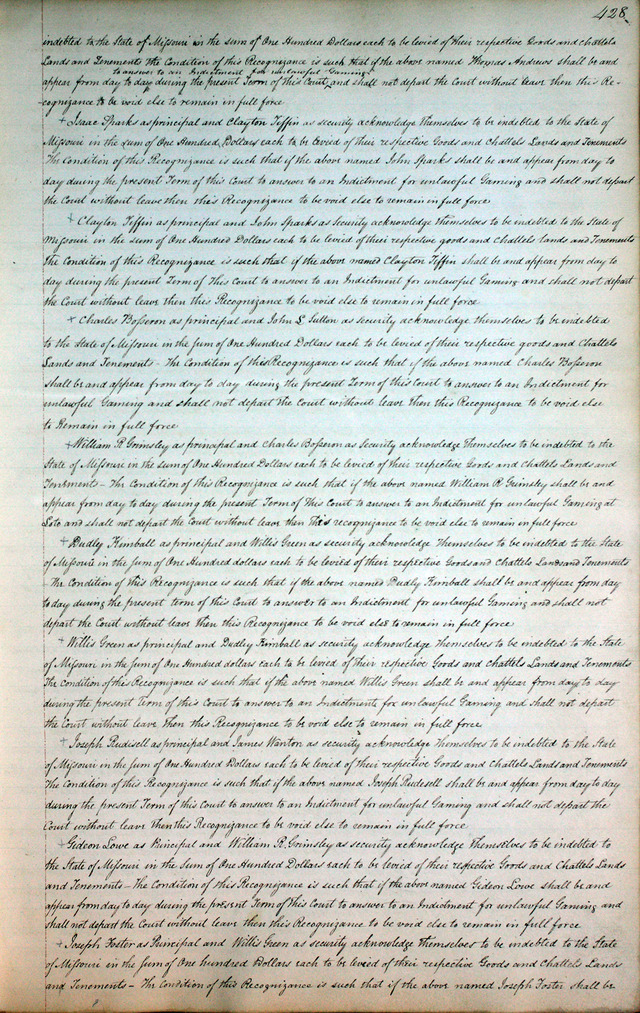 428
indebted to the State of Missouri in the sum of One Hundred Dollars each to be levied of their respective Goods and chattels
Lands and Tenements The Condition of this Recognizance is such that if the above named Thomas Andrews shall be and
to answer to an Indictment for unlawful Gaming
appear from day to day during the present Term of this Court and shall not depart the Court without leave then this Re-
-cognizance to be void else to remain in full force
+ Isaac Sparks as principal and Clayton Tiffin as security acknowledge themselves to be indebted to the State of
Missouri in the sum of One Hundred Dollars each to be levied of their respective Goods and Chattels Lands and Tenements
The Condition of this Recognizance is such that if the above named John Sparks shall be and appear from day to
day during the present Term of this Court to answer to an Indictment for unlawful Gaming and shall not depart
the Court without leave then this Recognizance to be void else to remain in full force
+ Clayton Tiffin as principal and John Sparks as security acknowledge themselves to be indebted to the State of
Missouri in the sum of One Hundred Dollars each to be levied of their respective goods and Chattels lands and Tenements
the Condition of this Recognizance is such that if the above named Clayton Tiffin shall be and appear from day to
day during the present Term of This Court to answer to an Indictment for unlawful Gaming and shall not depart
the Court without leave then this Recognizance to be void else to remain in full force
+ Charles Bosseron as principal and John L Sutton as security acknowledge themselves to be indebted
to the State of Missouri in the sum of One Hundred Dollars each to be levied of their respective goods and Chattels
Lands and Tenements – The Condition of this Recognizance is such that if the above named Charles Bosseron
shall be and appear from day to day during the present Term of this Court to answer to an Indictment for
unlawful Gaming and shall not depart the Court without leave then this Recognizance to be void else
to Remain in full force
+ William R Grimsley as principal and Charles Bosseron as Security acknowledge Themselves to be indebted to the
State of Missouri in the sum of One Hundred Dollars each to be levied of their respective Goods and Chattels Lands and
Tenements – The Condition of this Recognizance is such that if the above named William R Grimsley shall be and
appear from day to day during the present Term of this Court to answer to an Indictment for unlawful Gaming at
Loto and shall not depart the Court without leave then this recognizance to be void else to remain in full force
+ Dudly Kimball as principal and Willis Green as security acknowledge Themselves to be indebted to the State
of Missouri in the Sum of One Hundred dollars each to be levied of their respective Goods and Chattels Lands and Tenements
– The Condition of this Recognizance is such that if the above named Dudly Kimball shall be and appear from day
to day during the present term of this Court to answer to an Indictment for unlawful Gaming and shall not
depart the Court without leave then this Recognizance to be void else to remain in full force
+ Willis Green as principal and Dudley Kimball as security acknowledge themselves to be indebted to the State
of Missouri in the Sum of One Hundred dollars each to be levied of their respective Goods and Chattels Lands and Tenements
The Condition of this Recognizance is such that if the above named Willis Green shall be and appear from day to day
during the present Term of this Court to answer to an Indictment for unlawful Gaming and shall not depart
the Court without leave then this Recognizance to be void else to remain in full force
+ Joseph Rudisell as principal and James Wanton as security acknowledge Themselves to be indebted to the State
of Missouri in the Sum of One Hundred Dollars each to be levied of their respective Goods and Chattels Lands and Tenements
The Condition of this Recognizance is such that if the above named Joseph Rudesell shall be and appear from day to day
during the present Term of this Court to answer to an Indictment for unlawful Gaming and shall not depart the
Court without leave then this Recognizance to be void else to remain in full force
+ Gideon Lowe as Principal and William R. Grimsley as security acknowledge Themselves to be indebted to
the State of Missouri in the Sum of One Hundred Dollars each to be levied of their respective Goods and Chattels Lands
and Tenements – The Condition of this Recognizance is such that if the above named Gideon Lowe shall be and
appear from day to day during the present Term of this Court to answer to an Indictment for unlawful Gaming and
shall not depart the Court without leave then this Recognizance to be void else to remain in full force
+ Joseph Foster as Principal and Willis Green as security acknowledge Themselves to be indebted to the State
of Missouri in the Sum of One hundred Dollars each to be levied of their respective Goods and Chattels Lands
and Tenements – The Condition of this Recognizance is such that if the above named Joseph Foster shall be